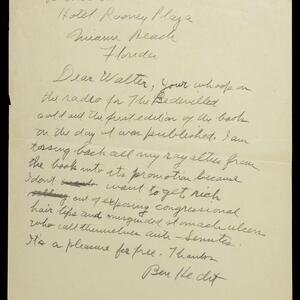 Hotel Roney Plaza
Miami Beach
Florida
Dear Walter, your whoop on
the radio for The Bedevilled
sold out the first edition of the book
on the day it was published. I am
tossing back all my royalties from
the book into its promotion because
I don't want to get rich
out of exposing congressional
hair lips and misguided stomach ulcers
who call themselves anti-Semites.
It's a pleasure for free. Thanks
Ben Hecht